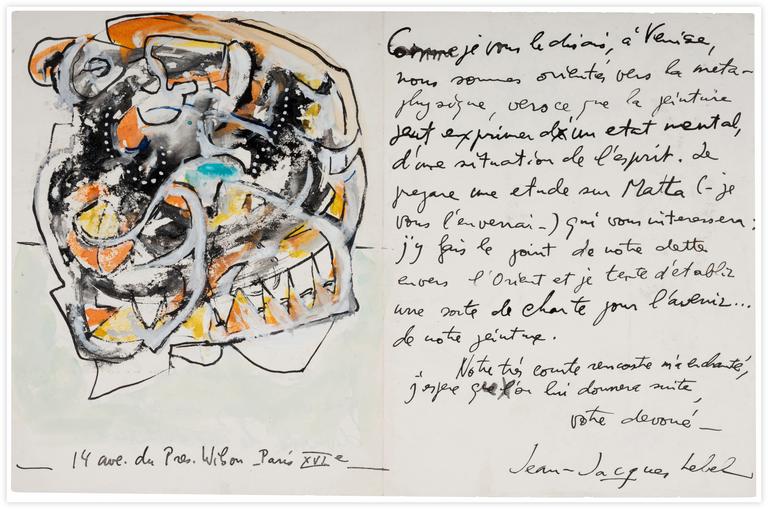 14 ave. du Pres. Wilson - Paris XVIe
Comme je vous le disais, à Venise,
nous sommes orientés vers la meta-
physique, vers ce que la peinture
peut exprimer d'un etat mental,
d'une situation de l'esprit. Je
prepare une etude sur Matta (- je
vous l'enverrai -) qui vous interessera :
j'y fais le point de notre dette
envers l'Orient et je tente d'établir
une sorte de charte pour l'avenir...
de notre peinture.
Notre très courte rencontre m'a enchanté,
j'espere que l'on lui donnera suite,
votre devoué —
Jean-Jacques Lebel